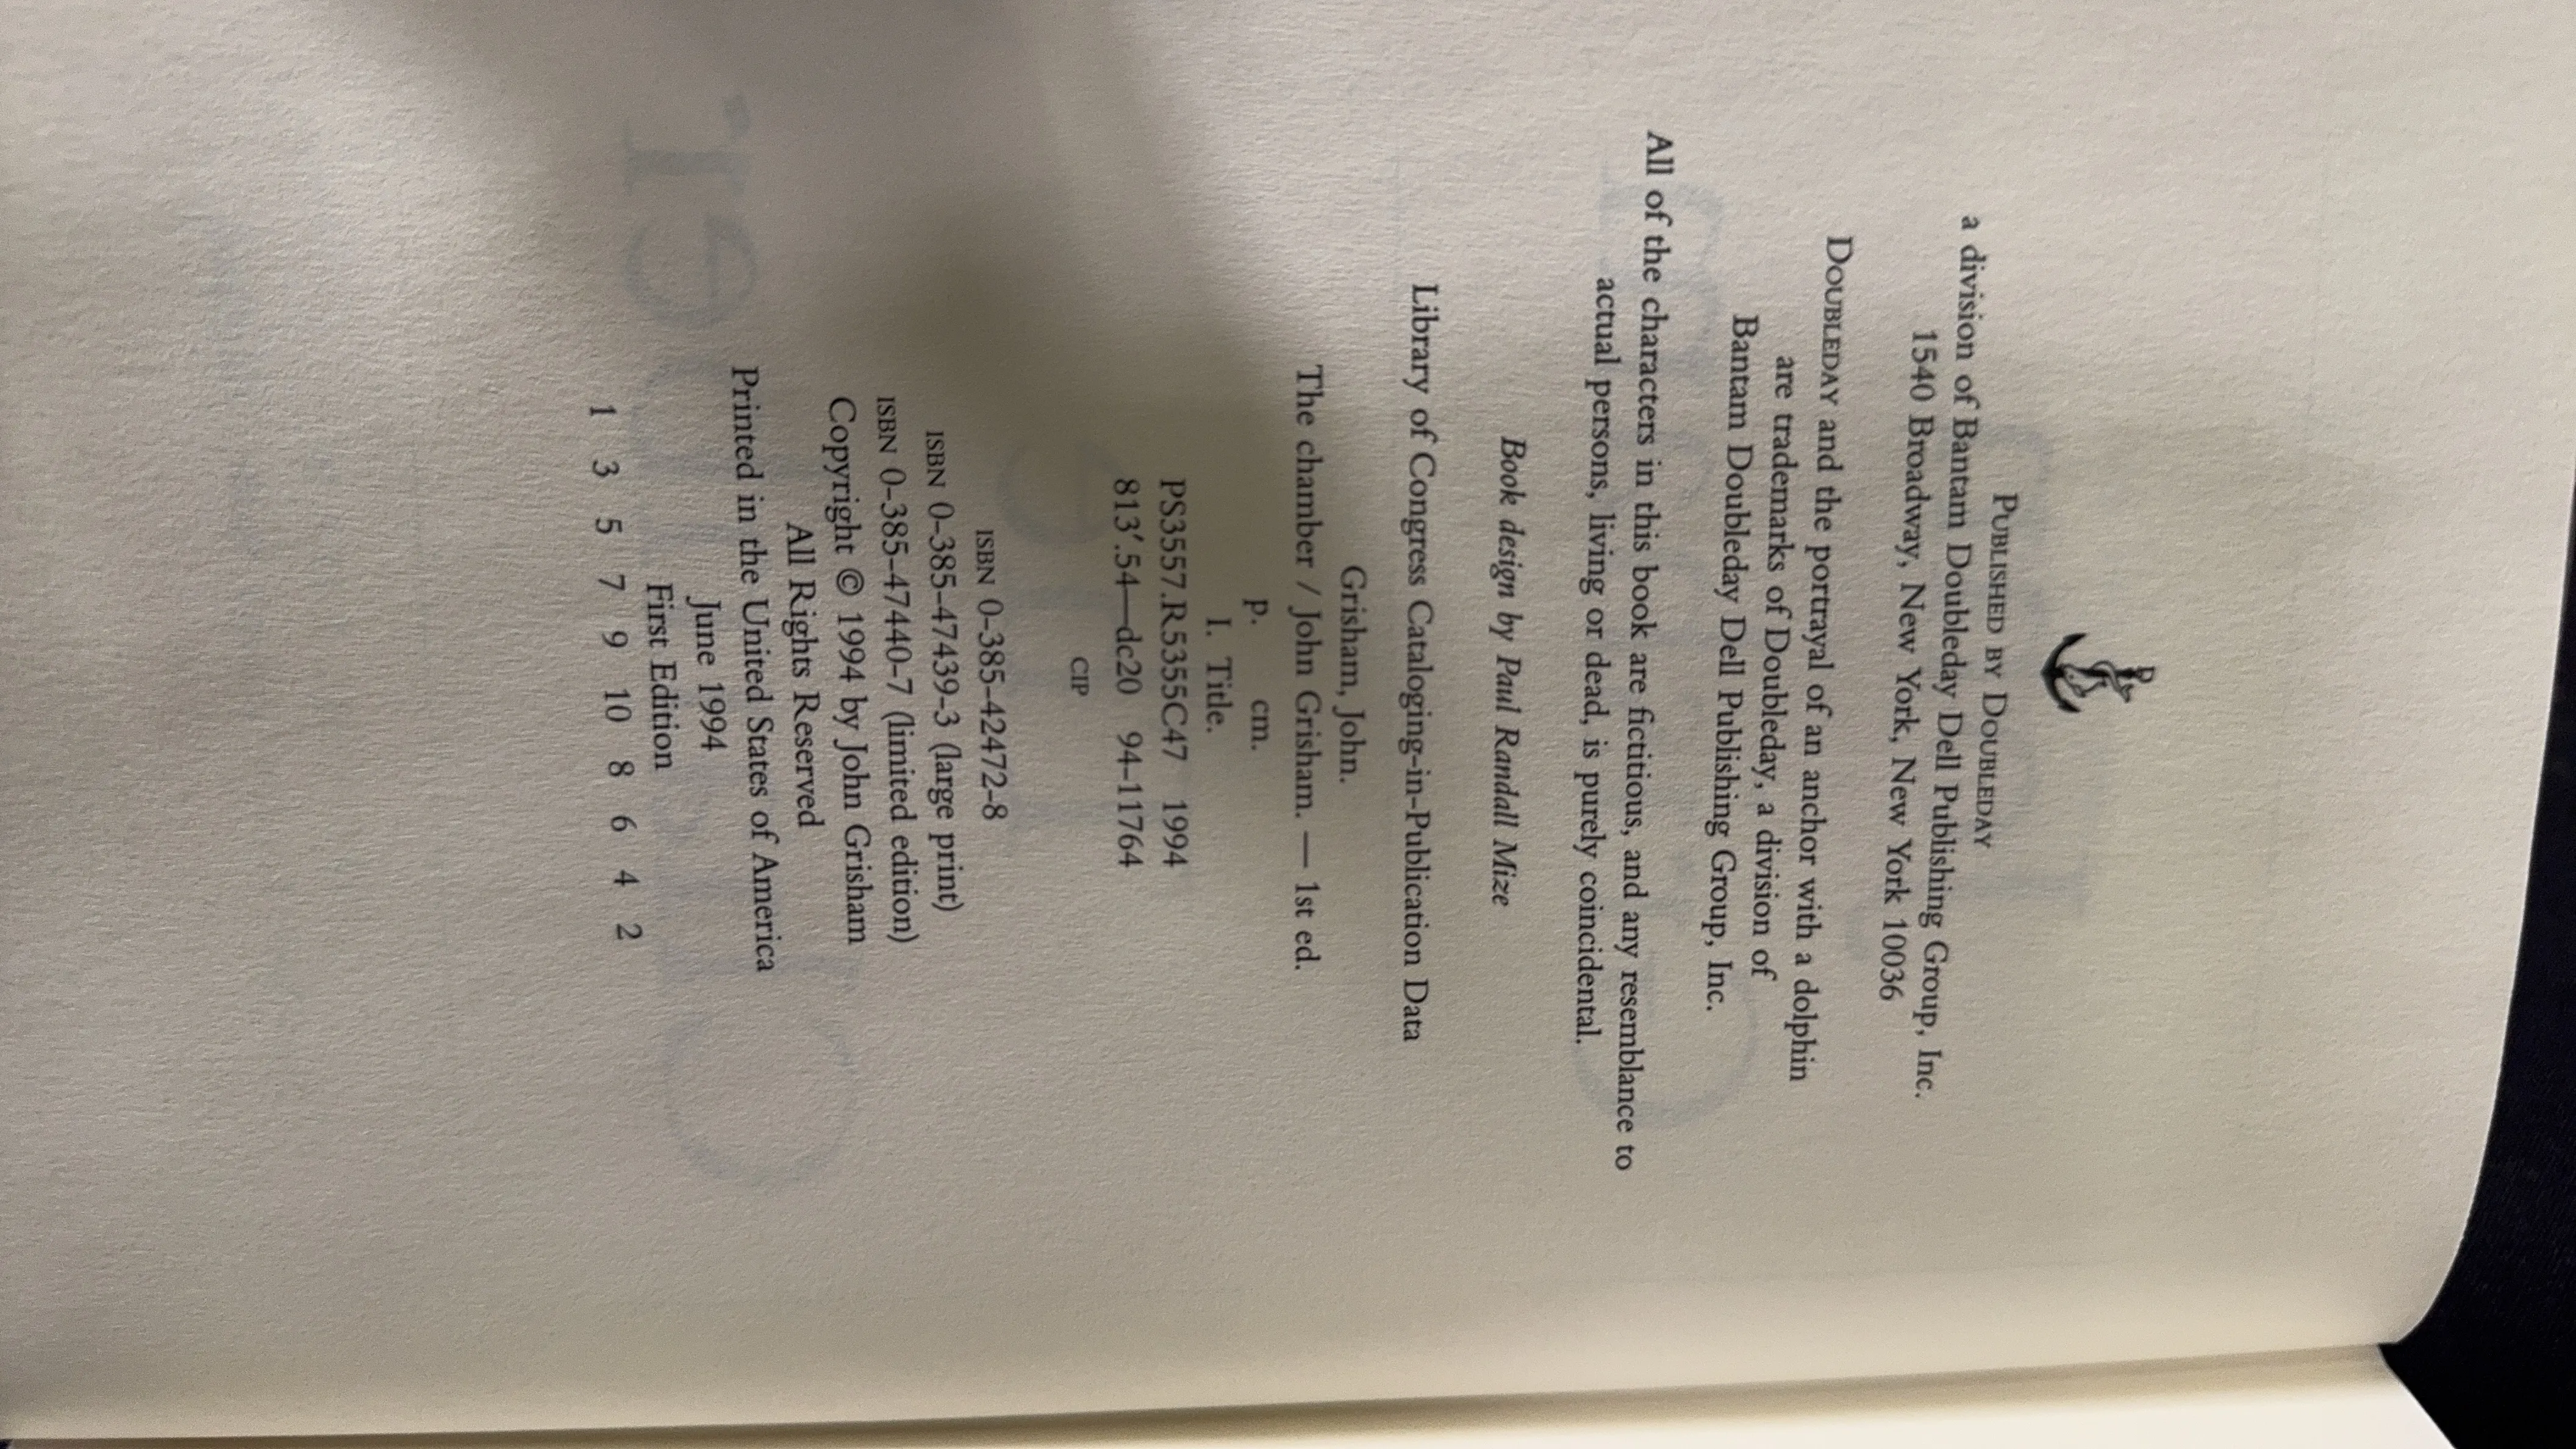 PUBLISHED BY DOUBLEDAY
a division of Bantam Doubleday Dell Publishing Group, Inc.
1540 Broadway, New York, New York 10036
DOUBLEDAY and the portrayal of an anchor with a dolphin
are trademarks of Doubleday, a division of
Bantam Doubleday Dell Publishing Group, Inc.
All of the characters in this book are fictitious, and any resemblance to
actual persons, living or dead, is purely coincidental.
Book design by Paul Randall Mize
Library of Congress Cataloging-in-Publication Data
Grisham, John.
The chamber / John Grisham. — 1st ed.
p. cm.
I. Title.
PS3557.R5355C47 1994
813′.54—dc20 94-11764
CIP
ISBN 0-385-42472-8
ISBN 0-385-47439-3 (large print)
ISBN 0-385-47440-7 (limited edition)
Copyright © 1994 by John Grisham
All Rights Reserved
Printed in the United States of America
June 1994
First Edition
1 3 5 7 9 10 8 6 4 2